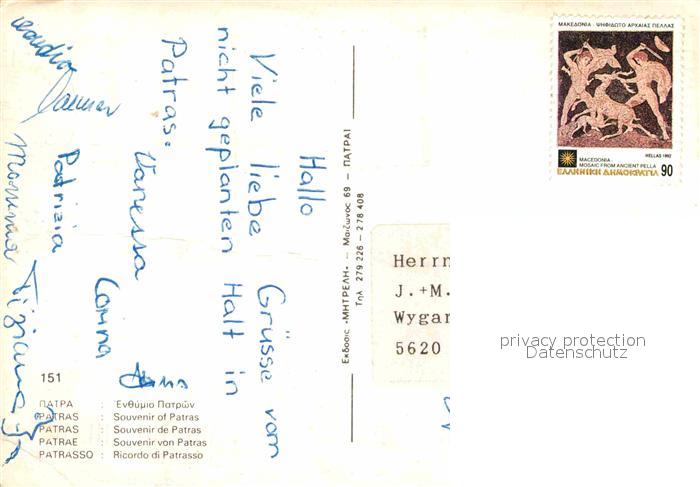 Hallo
Viele liebe Grüsse vom
nicht geplanten Halt in
Patras.
Vanessa
Corina
Patrizia
Tiziana
151
ΠΑΤΡΑ : Ἐνθύμιο Πατρῶν
PATRAS : Souvenir of Patras
PATRAS : Souvenir de Patras
PATRAE : Souvenir von Patras
PATRASSO : Ricordo di Patrasso
Εκδοσις «ΜΗΤΡΕΛΗ» — Μαιζωνος 69 — ΠΑΤΡΑΙ
Τηλ. 279 226 – 278 408
ΜΑΚΕΔΟΝΙΑ · ΨΗΦΙΔΩΤΟ ΑΡΧΑΙΑΣ ΠΕΛΛΑΣ
HELLAS 1992
MACEDONIA ·
MOSAIC FROM ANCIENT PELLA
ΕΛΛΗΝΙΚΗ ΔΗΜΟΚΡΑΤΙΑ 90
Herrn
J.+M.
Wygar
5620
privacy protection
Datenschutz